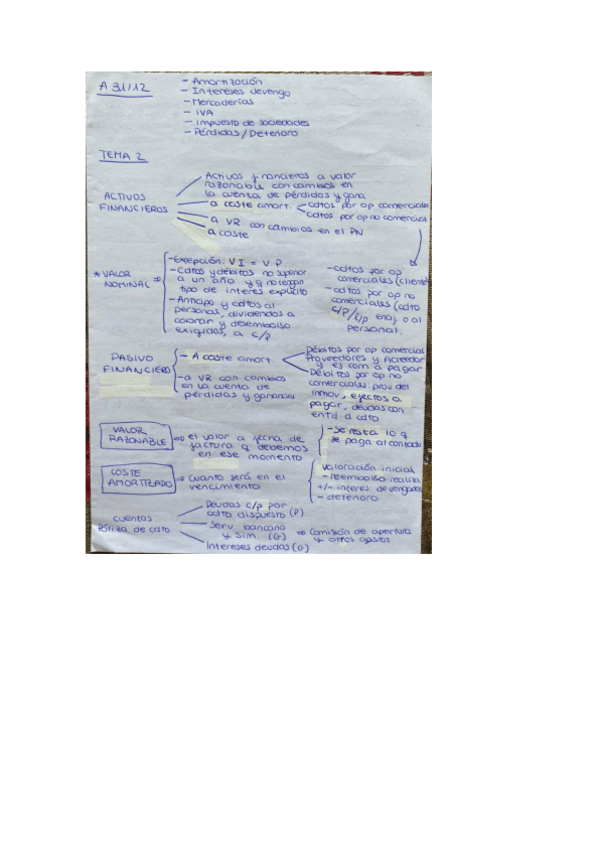 A 31/12
- Amortización
- Intereses devengo
- Mercaderías
- IVA
- Impuesto de sociedades
- Pérdidas / Deterioro
TEMA 2
ACTIVOS
FINANCIEROS
Activos financieros a valor
razonable con cambios en
la cuenta de pérdidas y gana
a coste amort.
cdtos por op comerciales
cdtos por op no comercial
a VR con cambios en el PN
a coste
* VALOR
NOMINAL ⇒
- Excepción: VI = V.P
- Cdtos y débitos no superior
a un año y q no tengan
tipo de interés explícito
- Anticipo y cdtos al
personal, dividendos a
cobrar y desembolso
exigidos, a c/p.
- cdtos por op
comerciales (cliente
- cdtos por op no
comerciales (cdto
c/p / l/p enaj. o al
personal.
PASIVO
FINANCIERO
- A coste amort.
Débitos por op comercial
Proveedores y Acreedor
y es com a pagar
Débitos por op no
comerciales: prov del
inmov, efectos a
pagar, deudas con
entd d cdto
- a VR con cambios
en la cuenta de
pérdidas y ganancias
VALOR
RAZONABLE
⇒ el valor a fecha de
factura q debemos
en ese momento
- se resta lo q
se paga al contado
COSTE
AMORTIZADO
⇒ cuanto será en el
vencimiento
valoración inicial
- reembolso realiza
+/- interes devengados
- deterioro
cuentas
Póliza de cdto
Deudas c/p por
cdto dispuesto (P)
Serv bancario
y sim. (G)
⇒ Comisión de apertura
y otros gastos
Intereses deudas (G)